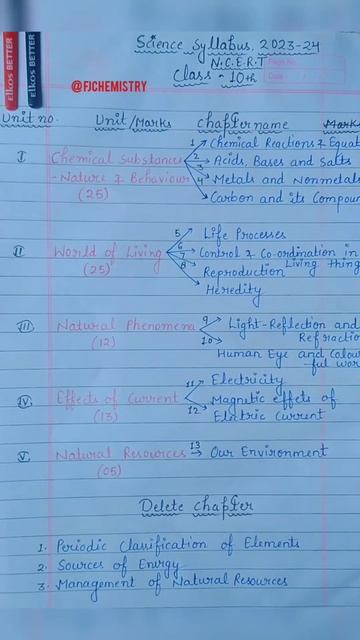 elkos BETTER
elkos BETTER
Science Syllabus, 2023-24
N.C.E.R.T
Class - 10th
Page No.
Date
@FJCHEMISTRY
Unit no. Unit/Marks Chapter name Marks
I Chemical Substances 1 Chemical Reactions & Equat
- Nature & Behaviour 2 Acids, Bases and Salts
(25) 3 Metals and Nonmetals
4 Carbon and its Compoun
II World of Living 5 Life Processes
(25) 6 Control & Co-ordination in
Living thing
7 Reproduction
8 Heredity
III Natural Phenomena 9 Light-Reflection and
(12) Refractio
10 Human Eye and Colou
ful wor
IV Effects of Current 11 Electricity
(13) 12 Magnetic effects of
Electric Current
V Natural Resources 13 Our Environment
(05)
Delete Chapter
1. Periodic Classification of Elements
2. Sources of Enrgy
3. Management of Natural Resources